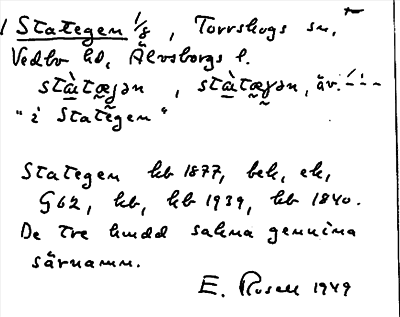 1 Stategen 1/8, Torrskogs sn,
Vedbo hd, Älvsborgs l.
stà̱tæɟən, stà̱tæɟən, äv.
"i Stategen"
Stategen kb 1877, bek, ek,
G62, hb, kb 1939, kb 1840.
De tre hmdd sakna genuina
särnamn.
E. Rosell 1949